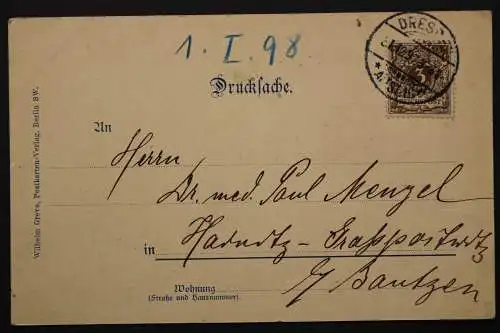 1. I. 98
DRESD
Drucksache.
An
Herrn
Dr. med. Paul Menzel
in Hainitz-
b/ Bautzen
Wohnung
(Straße und Hausnummer).
Wilhelm Greve, Postkarten-Verlag, Berlin SW.